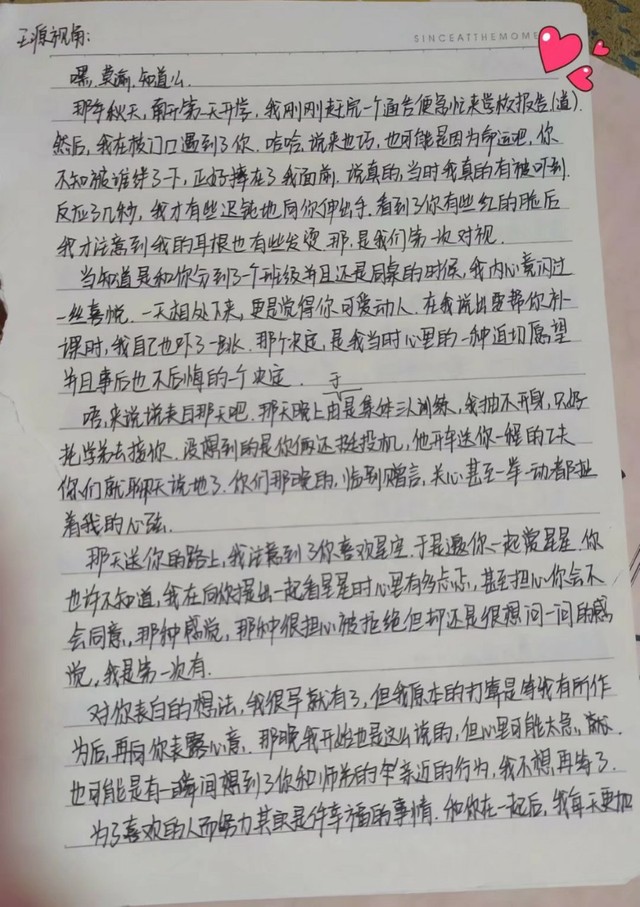 SINCEATTHEMOME
王源视角:
嘿,莫瑜,知道么.
那年秋天,南开第一天开学,我刚刚赶完一个通告便急忙来学校报告(道).
然后,我在校门口遇到了你.哈哈,说来也巧,也可能是因为命运吧,你
不知被谁绊了一下,正好摔在了我面前.说真的,当时我真的有被吓到.
反应了几秒,我才有些迟钝地向你伸出手.看到了你有些红的脸后
我才注意到我的耳根也有些发烫.那,是我们第一次对视.
当知道是和你分到了一个班级并且还是同桌的时候,我内心竟闪过
一丝喜悦.一天相处下来,更是觉得你可爱动人.在我说出要帮你补
课时,我自己也吓了一跳.那个决定,是我当时心里的一种迫切愿望
并且事后也不后悔的一个决定.
唔,来说说末日那天吧.那天晚上由于是集体三人训练,我抽不开身,只好
托学弟去接你.没想到的是你俩还挺投机,他开车送你一程的工夫
你们就聊天说地了.你们那晚的,临别赠言,关心甚至一举一动都扯
着我的心弦.
那天送你的路上,我注意到了你喜欢星空.于是邀你一起赏星星.你
也许不知道,我在向你提出一起看星星时心里有多忐忑,甚至担心你会不
会同意,那种感觉,那种很担心被拒绝但却还是很想问一问的感
觉,我是第一次有.
对你表白的想法,我很早就有了,但我原本的打算是等我有所作
为后,再向你表露心意.那晚我开始也是这么说的,但心里可能太急,
也可能是有一瞬间想到了你和师弟的亲近的行为,我不想,再等了.
为了喜欢的人而努力其实是件幸福的事情.和你在一起后,我每天更加